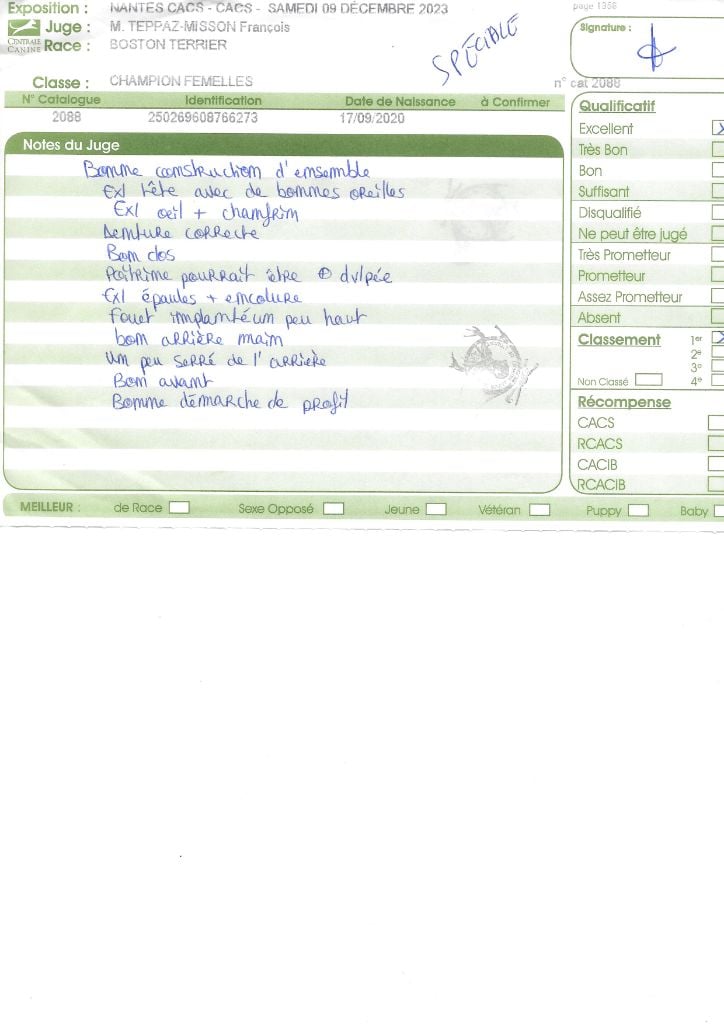 page 1358
Exposition : NANTES CACS - CACS - SAMEDI 09 DÉCEMBRE 2023
Juge : M. TEPPAZ-MISSON François
CENTRALE CANINE
Race : BOSTON TERRIER
SPÉCIALE
Signature :
Classe : CHAMPION FEMELLES
n° cat 2088
N° Catalogue Identification Date de Naissance à Confirmer
2088 250269608766273 17/09/2020
Notes du Juge
Bonne construction d'ensemble
Exl tête avec de bonnes oreilles
Exl oeil + chanfrin
Denture correcte
Bon dos
Poitrine pourrait être ⊕ dvlpée
Exl épaules + encolure
Fouet implanté un peu haut
bon arrière main
Un peu serré de l'arrière
Bon avant
Bonne démarche de profil
Qualificatif
Excellent X
Très Bon
Bon
Suffisant
Disqualifié
Ne peut être jugé
Très Prometteur
Prometteur
Assez Prometteur
Absent
Classement 1er X
2e
3e
Non Classé 4e
Récompense
CACS
RCACS
CACIB
RCACIB
MEILLEUR : de Race Sexe Opposé Jeune Vétéran Puppy Baby